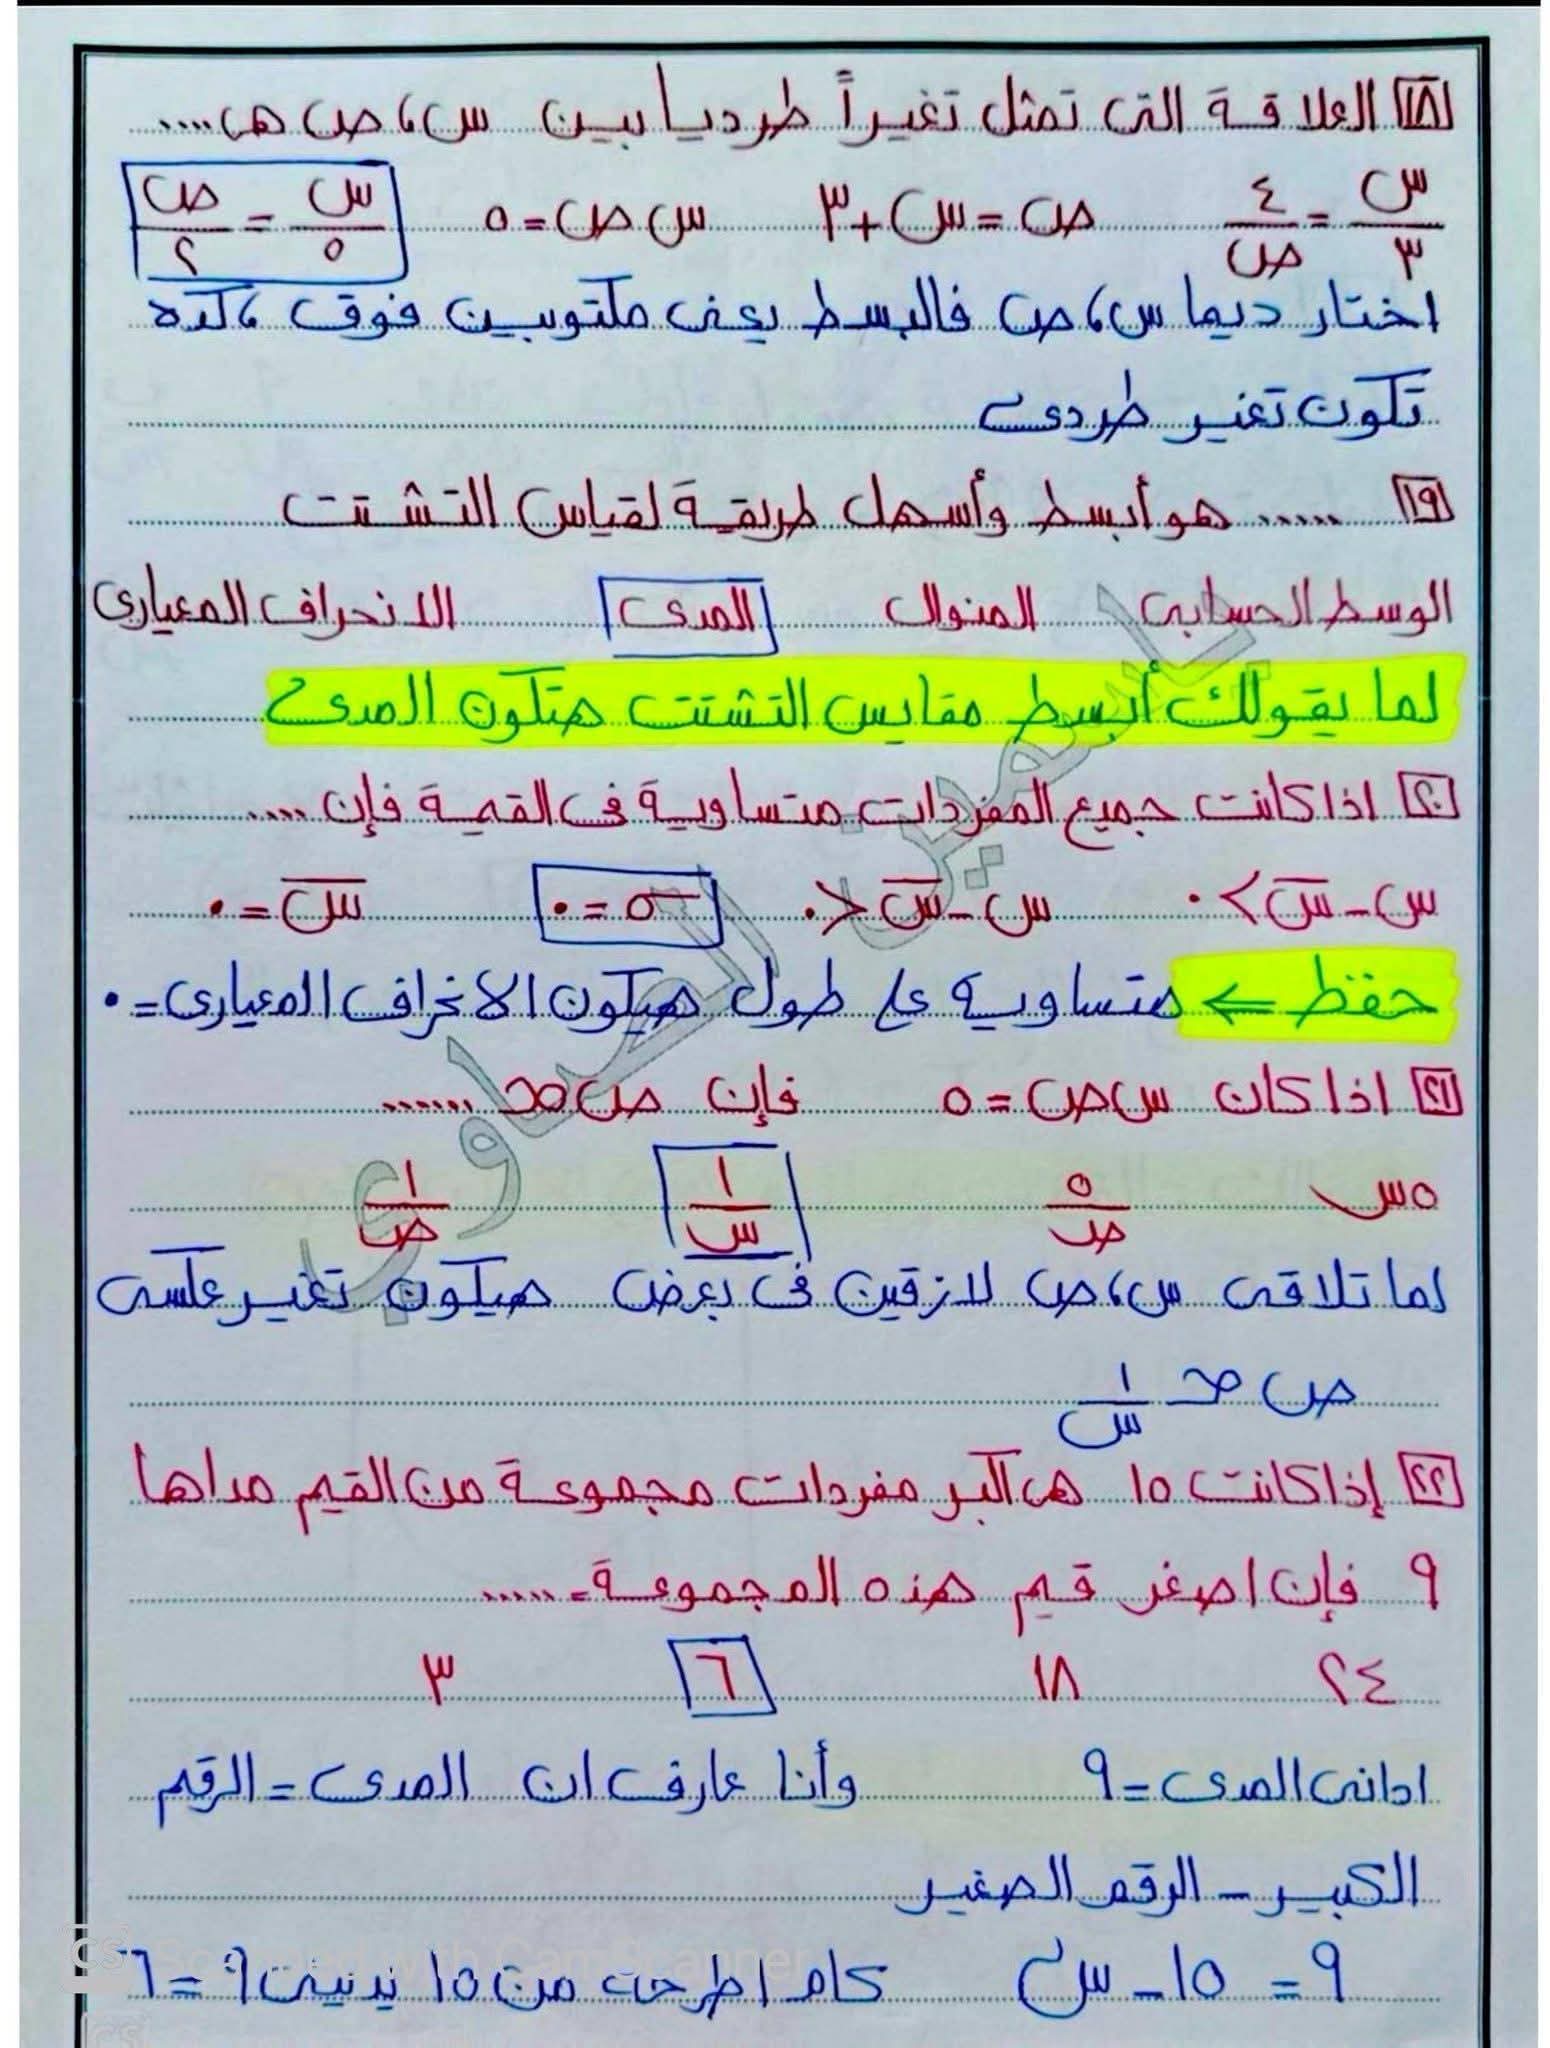 ١٨ العلاقة التى تمثل تغيراً طرديا بين س، ص هى ....
س/٣ = ٤/ص    ص = س + ٣    س ص = ٥    س/٥ = ص/٢
اختار ديما س، ص فالبسط يعنى مكتوبين فوق، كده
تكون تغير طردى
١٩ ...... هو أبسط وأسهل طريقة لقياس التشتت
الوسط الحسابى    المنوال    المدى    الانحراف المعيارى
لما يقولك أبسط مقايس التشتت هتكون المدى
٢٠ اذا كانت جميع المفردات متساوية فى القيمة فإن ....
س - س̅ > ٠    س - س̅ < ٠    σ = ٠    س̅ = ٠
حفظ ⇐ متساوية على طول هيكون الانحراف المعيارى = ٠
٢١ اذا كان س ص = ٥ فإن ص ∝ ......
٥ س    ٥/ص    ١/س    ١/ص
لما تلاقى س، ص لازقين فى بعض هيكون تغير عكسى
ص ∝ ١/س
٢٢ إذا كانت ١٥ هى اكبر مفردات مجموعة من القيم مداها
٩ فإن اصغر قيم هذه المجموعة = .....
٢٤    ١٨    ٦    ٣
ادانى المدى = ٩ وأنا عارف ان المدى = الرقم
الكبير - الرقم الصغير
٩ = ١٥ - س كام اطرحه من ١٥ يدينى ٩ = ٦
ياسمين الصاوى
CS Scanned with CamScanner